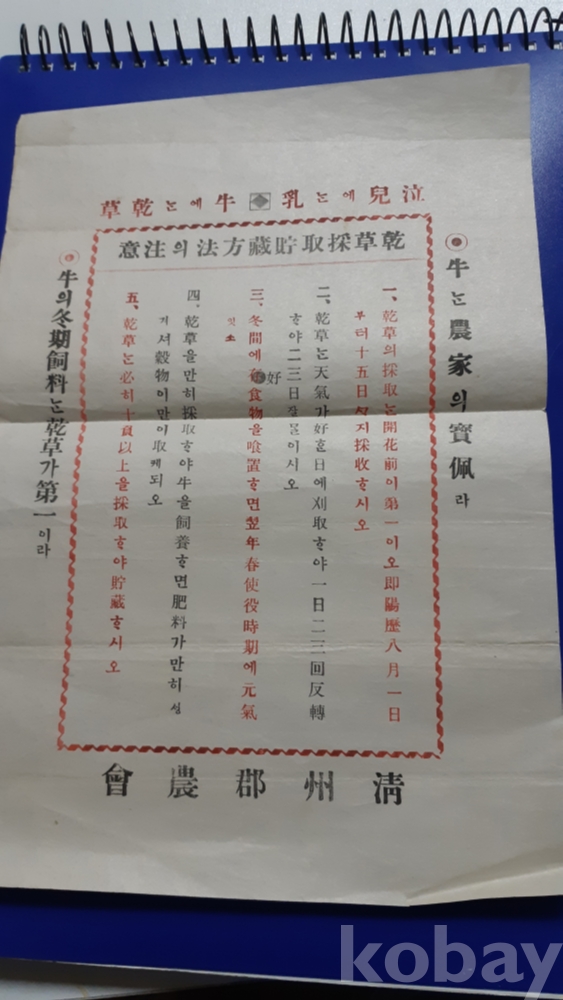 泣兒에는乳 牛에는乾草
牛는農家의寶佩라
乾草採取貯藏方法의注意
一、乾草의採取는開花前이第一이오即陽歷八月一日
부터十五日ᄭᆞ지採收ᄒᆞ시오
二、乾草는天氣가好ᄒᆞᆫ日에刈取ᄒᆞ야一日二三回反轉
ᄒᆞ야二三日잘말이시오
好
三、冬間에食物을喰置ᄒᆞ면翌年春使役時期에元氣
잇소
四、乾草을만히採取ᄒᆞ야牛을飼養ᄒᆞ면肥料가만히성
기셔穀物이만이取케되오
五、乾草는必히十貟以上을採取ᄒᆞ야貯藏ᄒᆞ시오
牛의冬期飼料는乾草가第一이라
淸州郡農會
kobay